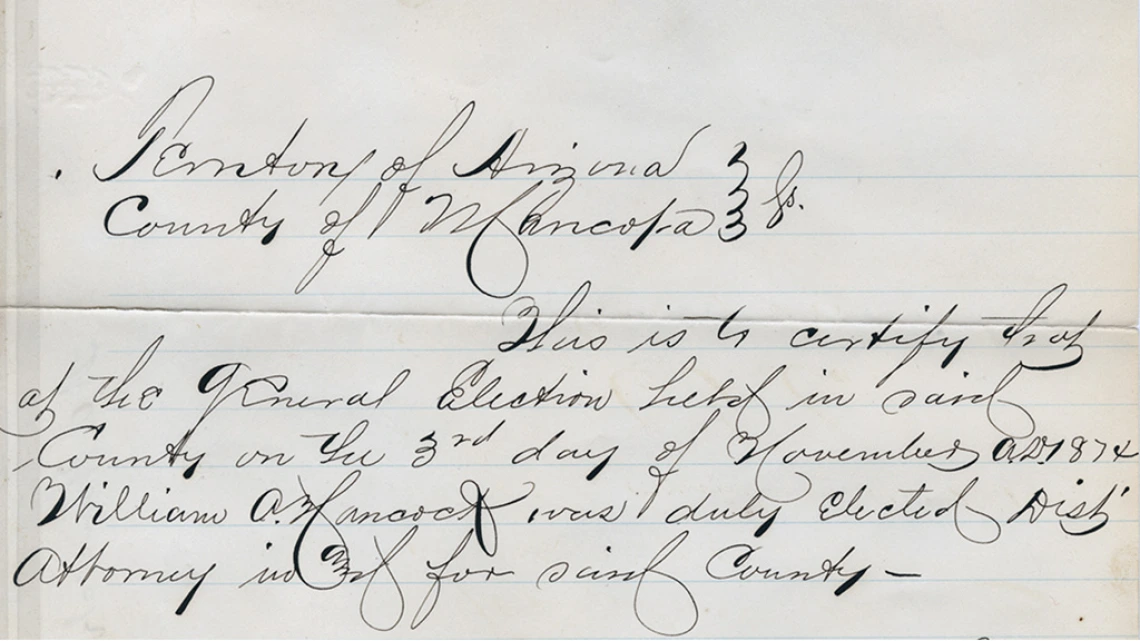 Territory of Arizona } ss.
County of Maricopa }
This is to certify that
at the General Election held in said
County on the 3rd day of November A.D. 1874
William A. Hancock was duly Elected Dist
Attorney in and for said County —